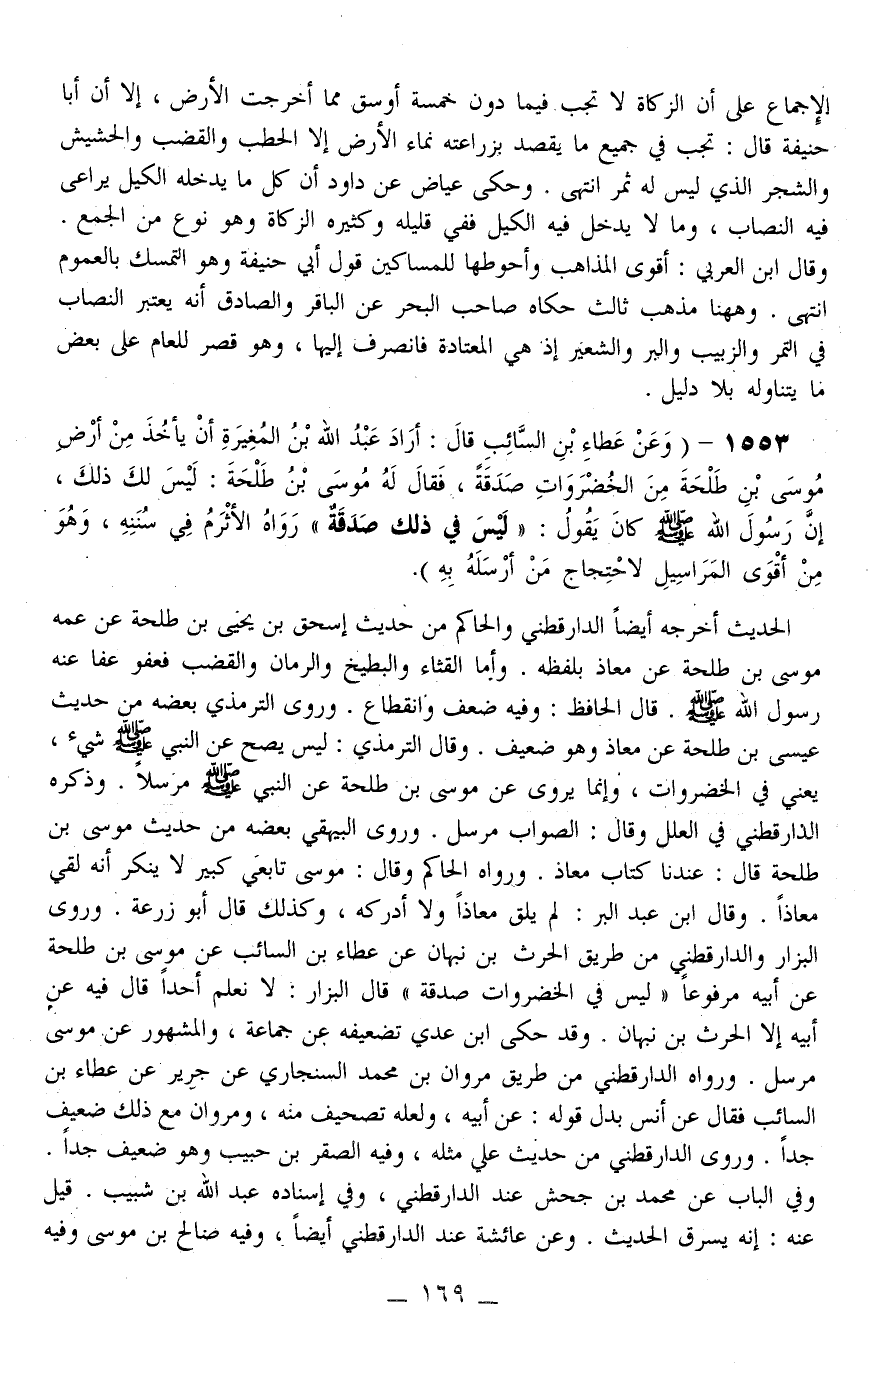 الإجماع على أن الزكاة لا تجب فيما دون خمسة أوسق مما أخرجت الأرض ، إلا أن أبا
حنيفة قال : تجب في جميع ما يقصد بزراعته نماء الأرض إلا الحطب والقضب والحشيش
والشجر الذي ليس له ثمر انتهى . وحكى عياض عن داود أن كل ما يدخله الكيل يراعى
فيه النصاب ، وما لا يدخل فيه الكيل ففي قليله وكثيره الزكاة وهو نوع من الجمع .
وقال ابن العربي : أقوى المذاهب وأحوطها للمساكين قول أبي حنيفة وهو التمسك بالعموم
انتهى . وههنا مذهب ثالث حكاه صاحب البحر عن الباقر والصادق أنه يعتبر النصاب
في التمر والزبيب والبر والشعير إذ هي المعتادة فانصرف إليها ، وهو قصر للعام على بعض
ما يتناوله بلا دليل .
١٥٥٣ – ( وَعَنْ عَطاءِ بْنِ السَّائِبِ قالَ : أرَادَ عَبْدُ الله بْنُ المُغِيرَةِ أنْ يأخُذَ مِنْ أرْضِ
مُوسَى بْنِ طَلْحَةَ مِنَ الخُضْرَوَاتِ صَدَقَةً ، فَقالَ لَهُ مُوسَى بْنُ طَلْحَةَ : لَيْسَ لكَ ذلكَ ،
إنَّ رَسُولَ الله ﷺ كانَ يَقُولُ : « لَيْسَ في ذلك صَدَقَةٌ » رَوَاهُ الأثْرَمُ فِي سُنَنِهِ ، وَهُوَ
مِنْ أقْوَى المَرَاسِيلِ لاحْتِجاجِ مَنْ أرْسَلَهُ بِهِ ).
الحديث أخرجه أيضاً الدارقطني والحاكم من حديث إسحق بن يحيى بن طلحة عن عمه
موسى بن طلحة عن معاذ بلفظه . وأما القثاء والبطيخ والرمان والقضب فعفو عفا عنه
رسول الله ﷺ . قال الحافظ : وفيه ضعف وانقطاع . وروى الترمذي بعضه من حديث
عيسى بن طلحة عن معاذ وهو ضعيف . وقال الترمذي : ليس يصح عن النبي ﷺ شيء ،
يعني في الخضروات ، وإنما يروى عن موسى بن طلحة عن النبي ﷺ مرسلاً . وذكره
الدارقطني في العلل وقال : الصواب مرسل . وروى البيهقي بعضه من حديث موسى بن
طلحة قال : عندنا كتاب معاذ . ورواه الحاكم وقال : موسى تابعي كبير لا ينكر أنه لقي
معاذاً . وقال ابن عبد البر : لم يلق معاذاً ولا أدركه ، وكذلك قال أبو زرعة . وروى
البزار والدارقطني من طريق الحرث بن نبهان عن عطاء بن السائب عن موسى بن طلحة
عن أبيه مرفوعاً « ليس في الخضروات صدقة » قال البزار : لا نعلم أحداً قال فيه عن
أبيه إلا الحرث بن نبهان . وقد حكى ابن عدي تضعيفه عن جماعة ، والمشهور عن موسى
مرسل . ورواه الدارقطني من طريق مروان بن محمد السنجاري عن جرير عن عطاء بن
السائب فقال عن أنس بدل قوله : عن أبيه ، ولعله تصحيف منه ، ومروان مع ذلك ضعيف
جداً . وروى الدارقطني من حديث علي مثله ، وفيه الصقر بن حبيب وهو ضعيف جداً .
وفي الباب عن محمد بن جحش عند الدارقطني ، وفي إسناده عبد الله بن شبيب . قيل
عنه : إنه يسرق الحديث . وعن عائشة عند الدارقطني أيضاً ، وفيه صالح بن موسى وفيه
_ ١٦٩ _